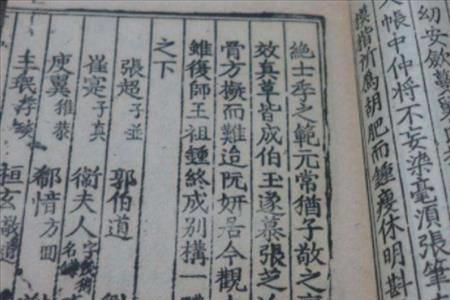 幼安斂
帳中仲將不妄染毫須張筆
模楷所為胡肥而鍾瘦休明斟
絕士季之範元常猶子敬之
效真草皆成伯玉遂慕張芝
骨方擬而難造阮妍居今觀
雖復師王祖鍾終成別構一
之下
張超子並 郭伯道
崔寔子真 衛夫人名字茂
庾翼稚恭 郗愔方回
王珉季琰 桓玄敬道